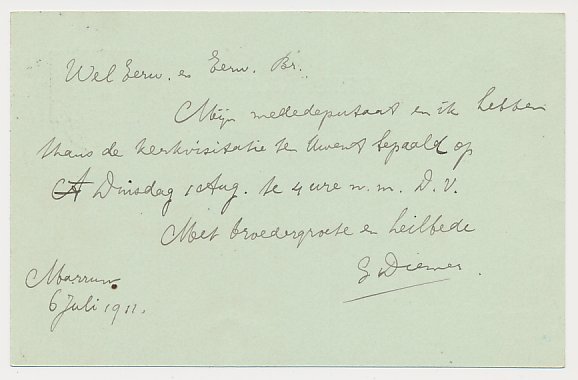 Wel Eerw. en Eerw. Br.
Mijn mededeputaat en ik hebben
thans de kerkvisitatie ten Uwent bepaald op
Dinsdag 1 Aug. te 4 ure n. m. D. V.
Met broedergroete en heilbede
Diemer.
Marrum
6 Juli 1911.